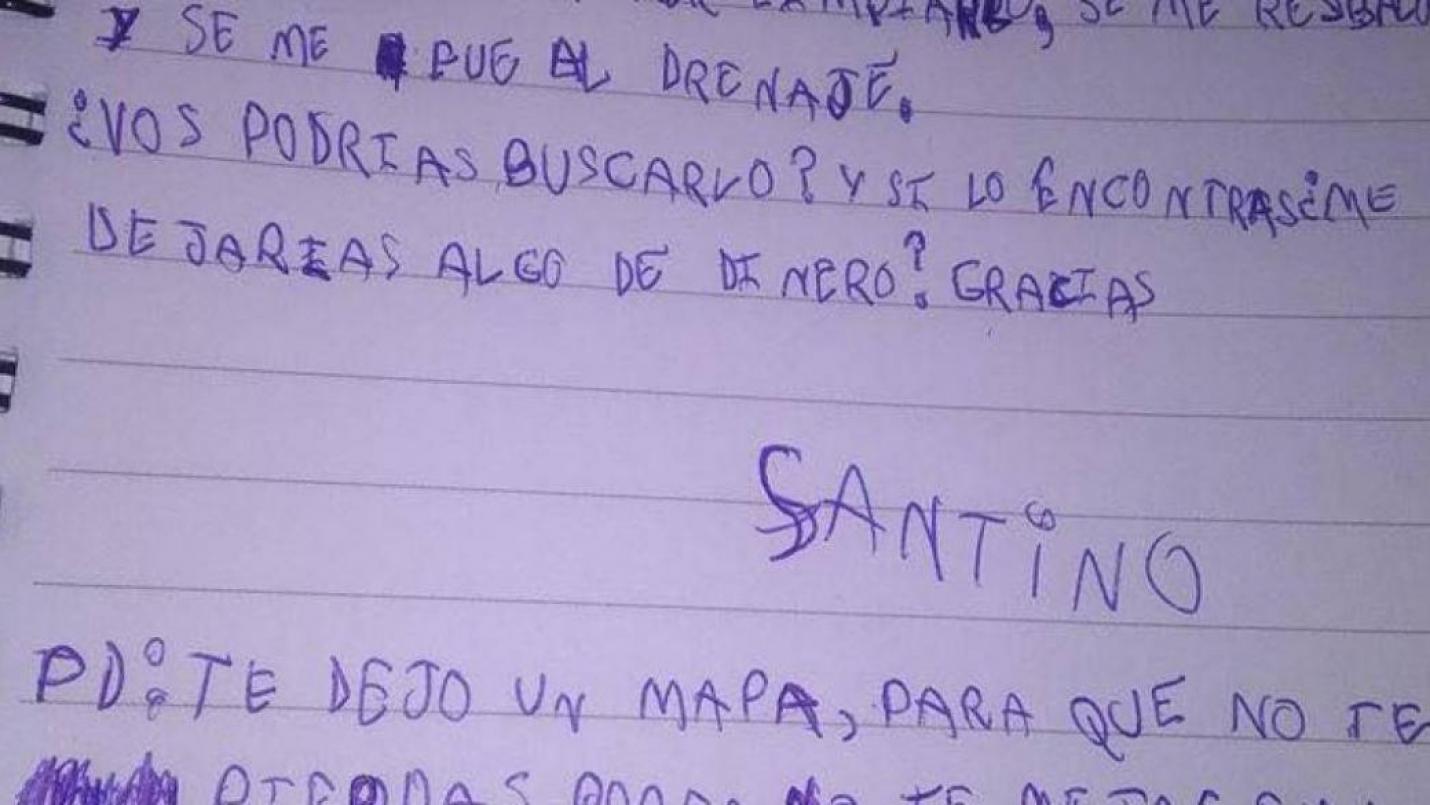 SE ME RESBALO
Y SE ME FUE AL DRENAJE.
¿VOS PODRIAS BUSCARLO? Y SI LO ENCONTRAS¿ME
DEJARIAS ALGO DE DINERO? GRACIAS
SANTINO
PD: TE DEJO UN MAPA, PARA QUE NO TE
PIERDAS PARA NO TE